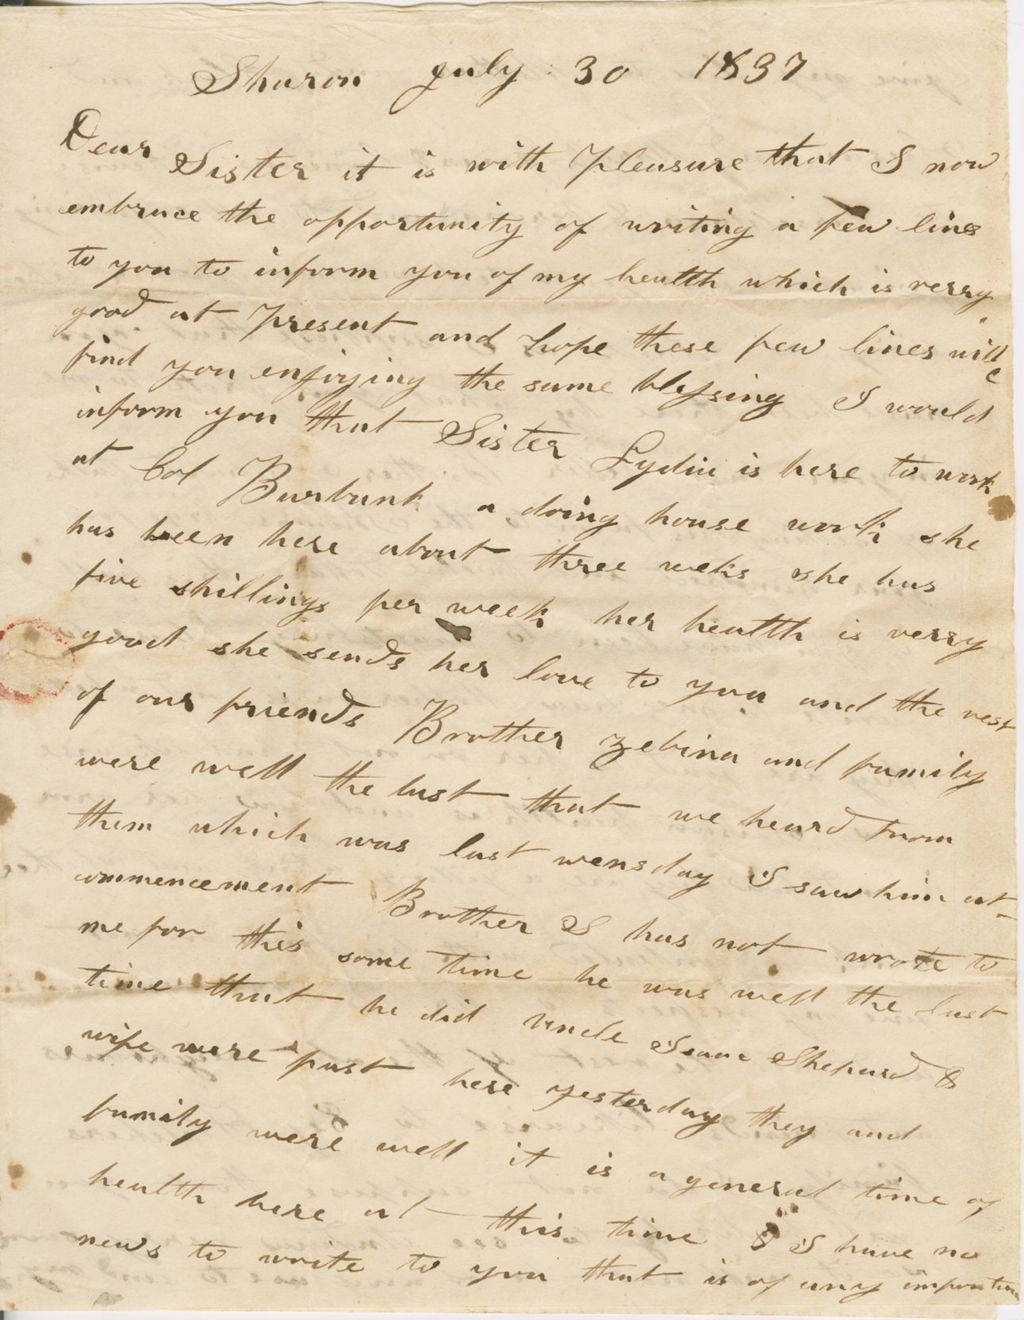 Sharon July 30 1837
Dear Sister it is with Pleasure that I now
embrace the opportunity of writing a few lines
to you to inform you of my health which is verry
good at Present and hope these few lines will
find you enjoying the same blessing I would
inform you that Sister Lydia is here to work
at Col Burbank a doing house work she
has been here about three weks she has
five shillings per week her health is verry
good she sends her love to you and the rest
of our friends Brother Zebina and family
were well the last that we heard from
them which was last wensday I saw him at
commencement Brother S has not wrote to
me for this some time he was well the last
time that he did uncle Isaac Shepard &
wife were past here yesterday they and
family were well it is a general time of
health here at this time I have no
news to write to you that is of any